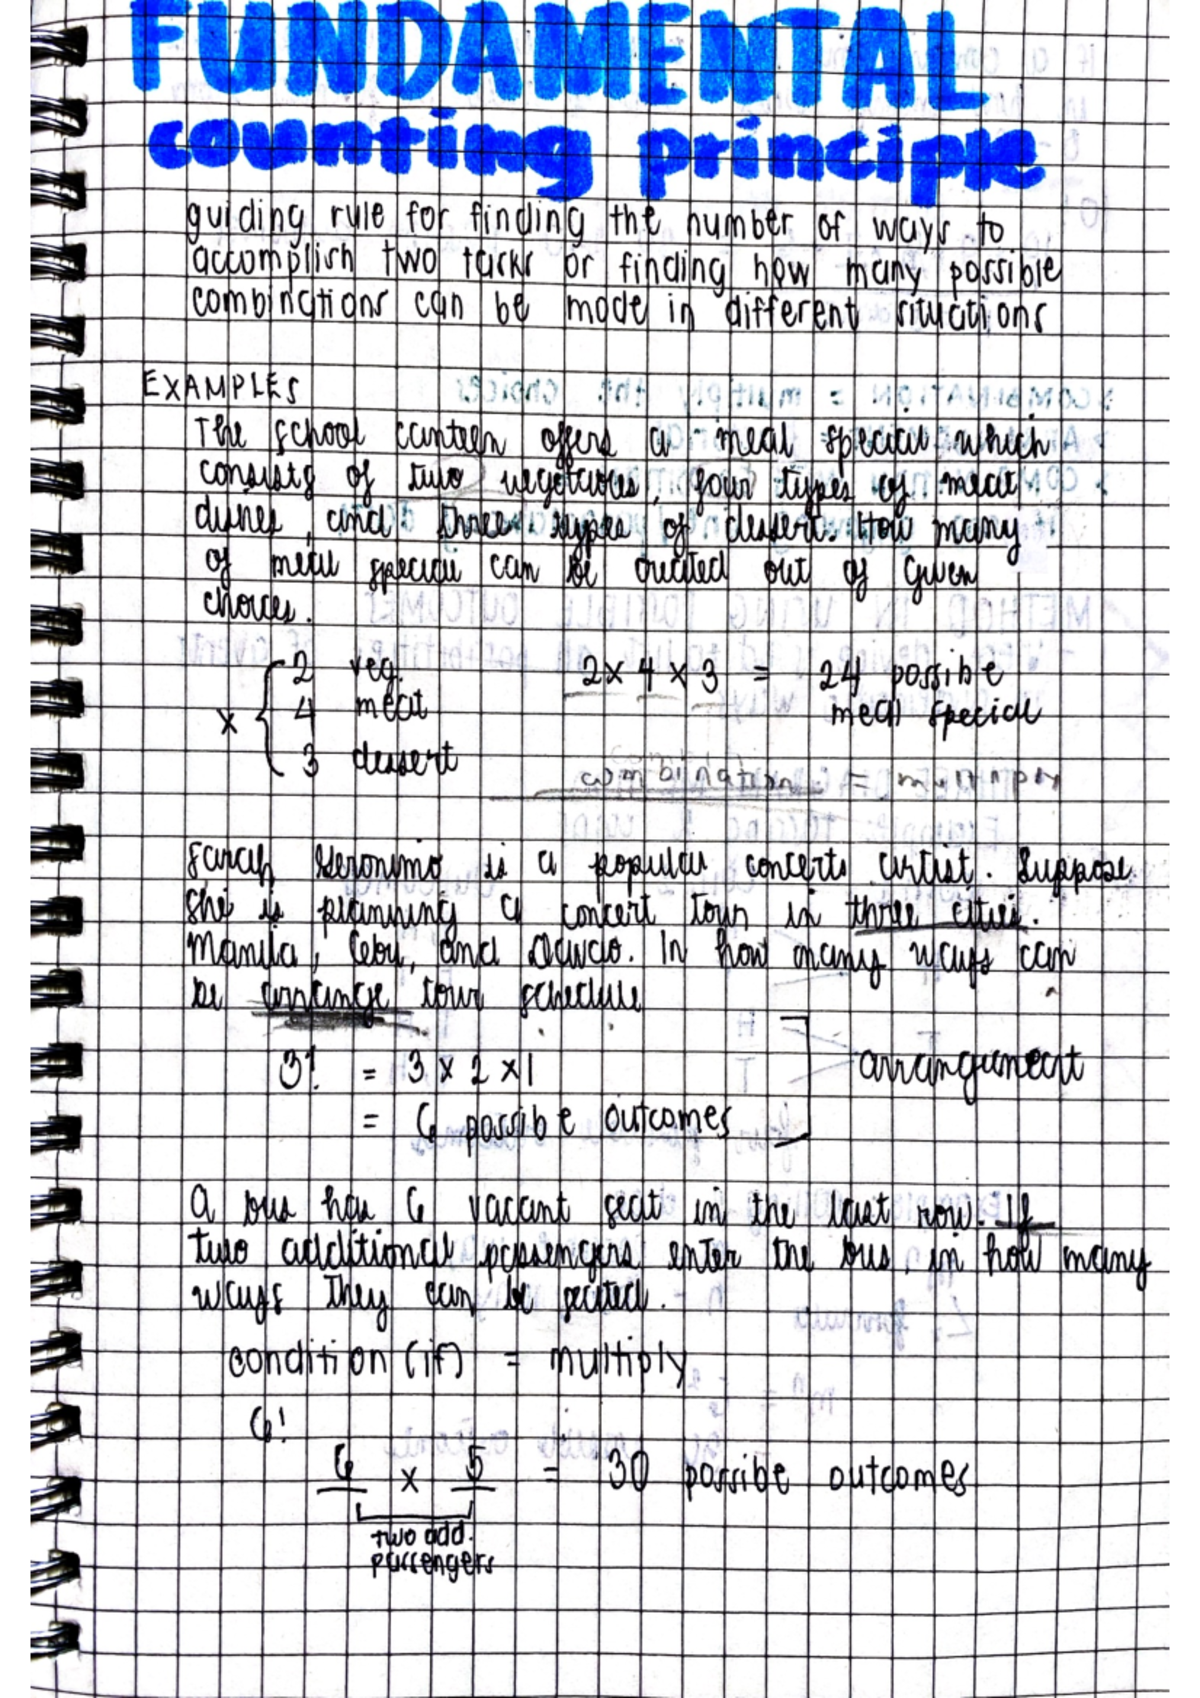 FUNDAMENTAL
counting principle
guiding rule for finding the number of ways to
accomplish two tasks or finding how many possible
combinations can be made in different situations
EXAMPLES
The school canteen offers a meal special which
consists of two vegetables, four types of meat
dishes, and three types of dessert. How many
of meal special can be created out of given
choices.
2 veg. 2 x 4 x 3 = 24 possible
x 4 meat meal special
3 dessert
combination = multiply
Sarah Geronimo is a popular concerts artist. Suppose
she is planning a concert tour in three cities.
Manila, Cebu, and Davao. In how many ways can
be arrange tour schedule
3! = 3 x 2 x 1 arrangement
= 6 possible outcomes
A bus has 6 vacant seat in the last row. If
two additional passengers enter the bus, in how many
ways they can be seated.
condition (if) = multiply
6!
6 x 5 = 30 possibe outcomes
two add.
passengers